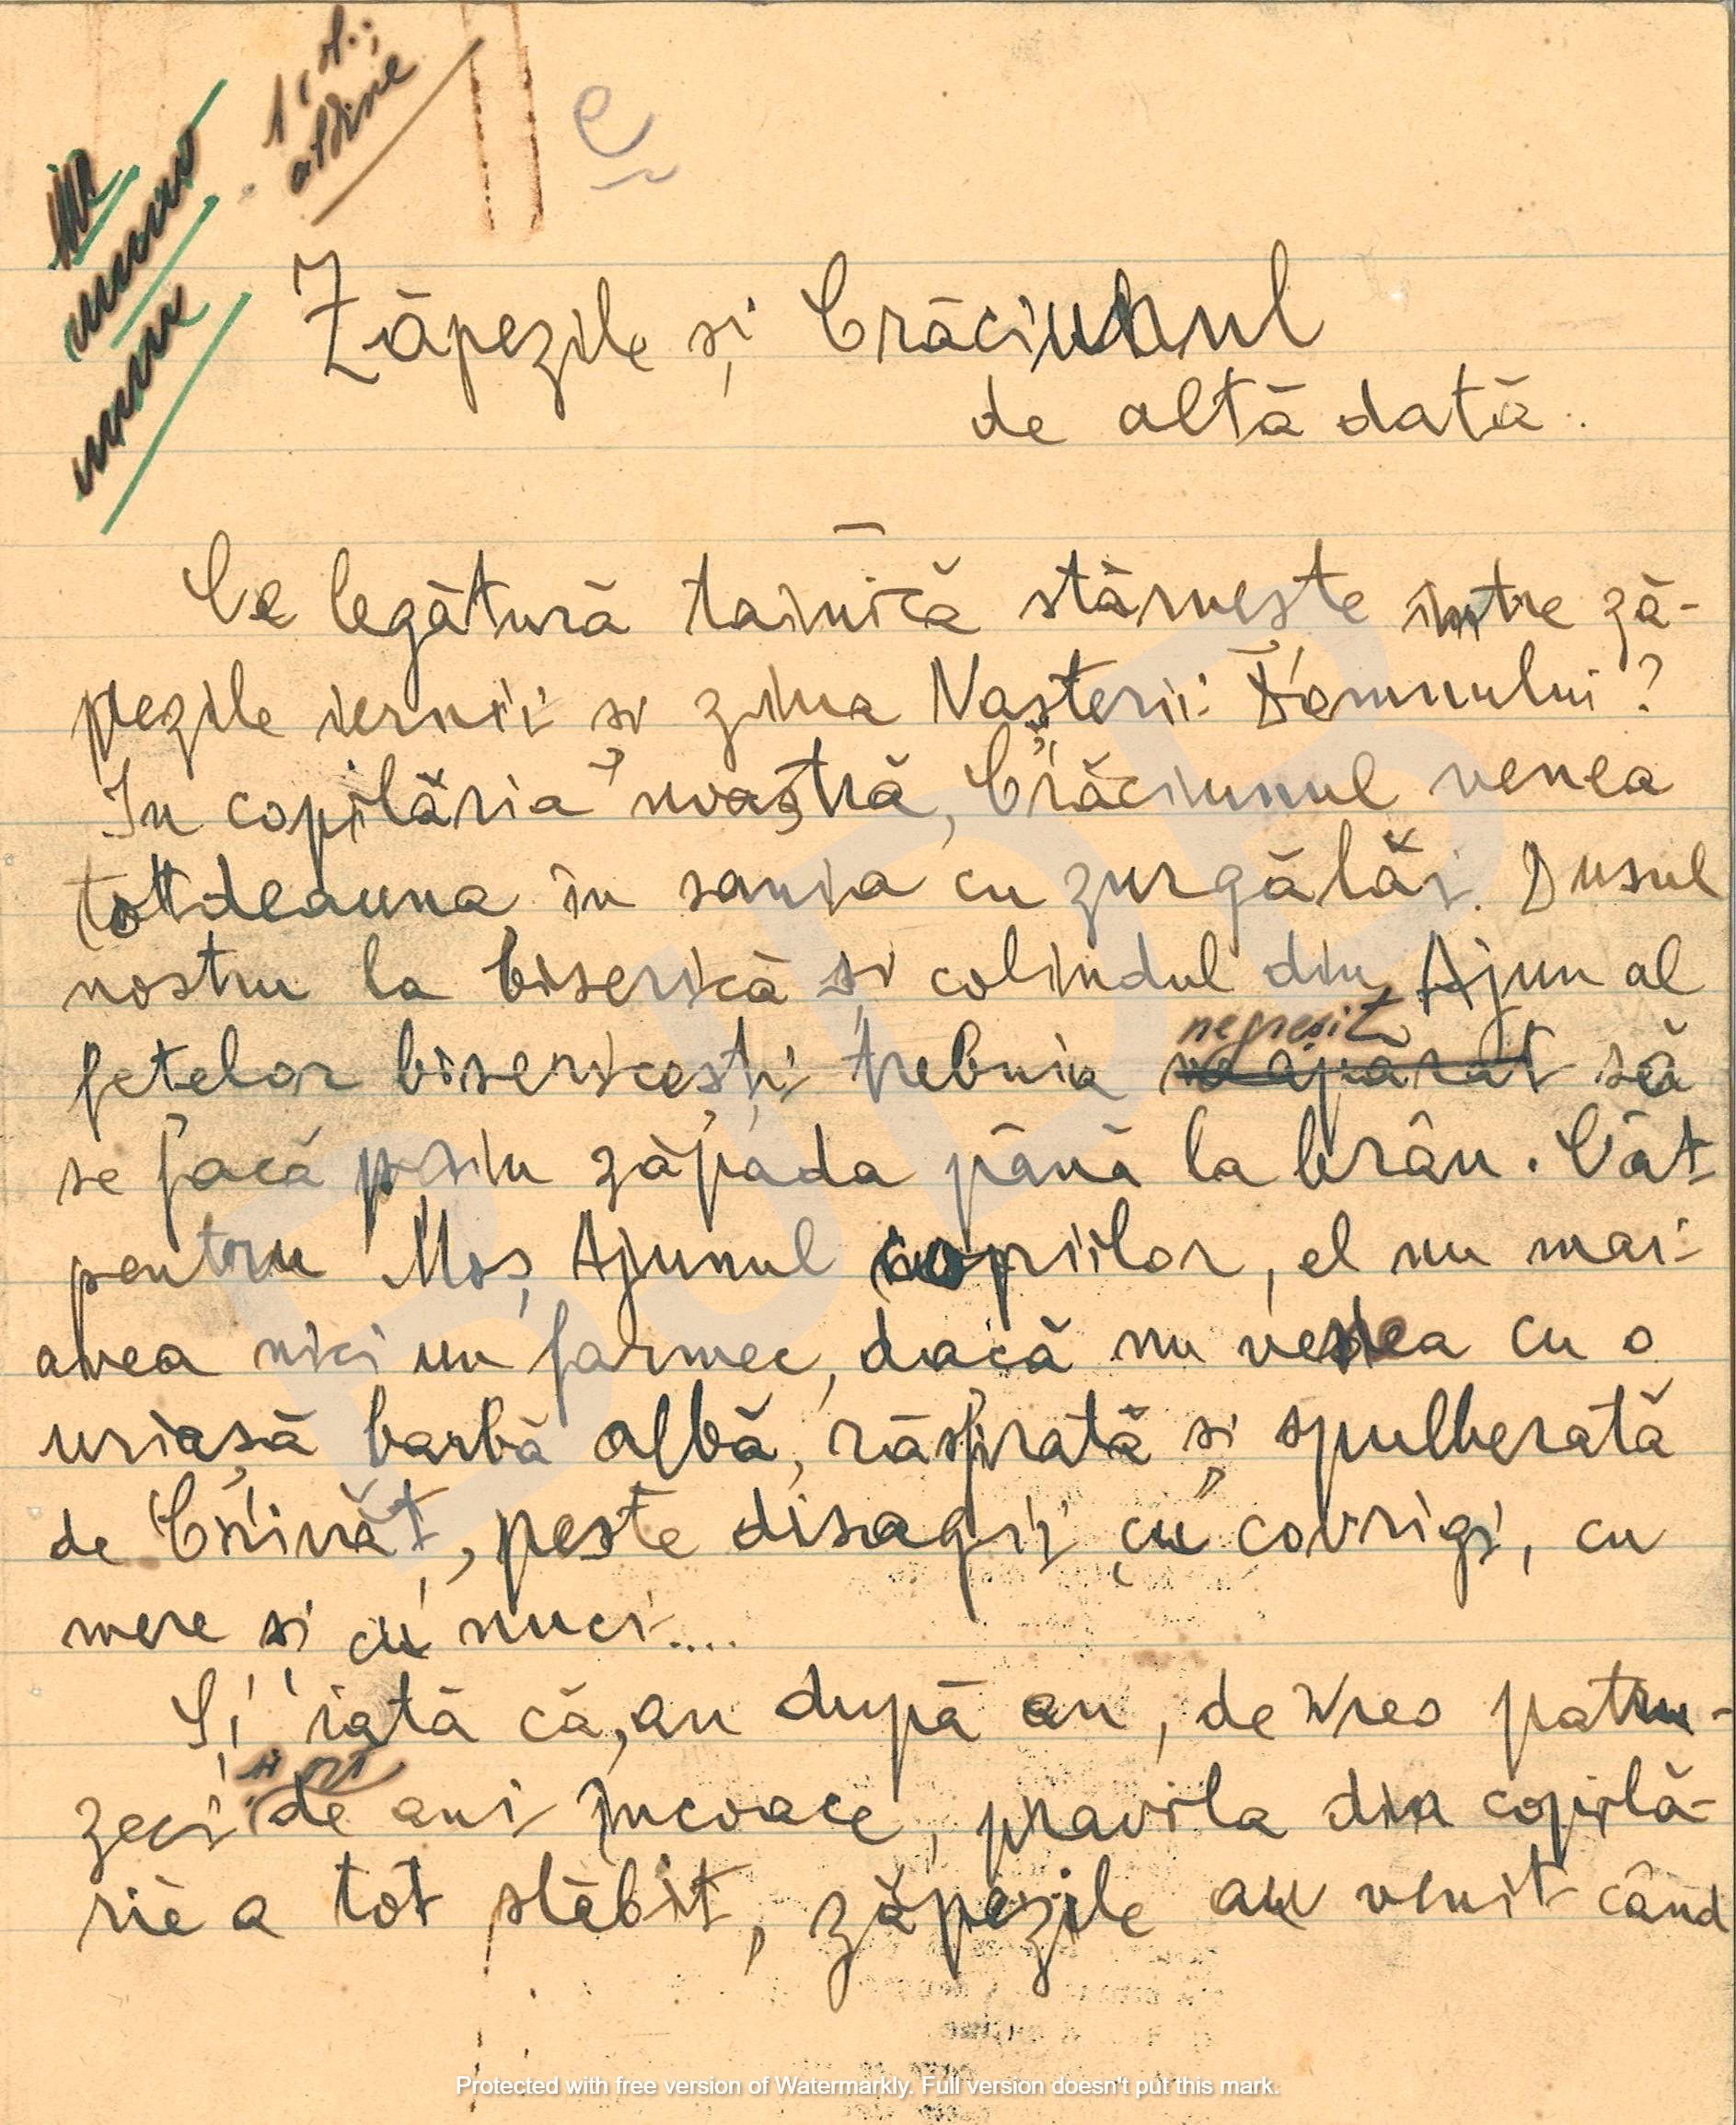 1 col.;
aldine
e
Zăpezile și Crăciunul
de altă dată.
Ce legătură tainică stârnește între ză-
pezile iernii și ziua Nașterii Domnului?
In copilăria noastră, Crăciunul venea
totdeauna în sania cu zurgălăi. Dusul
nostru la biserică și colindul din Ajun al
negreșit
fetelor bisericești trebuia neapărat să
se facă prin zăpada până la brâu. Cât
pentru Moș Ajunul copiilor, el nu mai
avea nici un farmec, dacă nu venea cu o
uriașă barbă albă, răsfirată și spulberată
de Crivăț, peste disagii cu covrigi, cu
mere și cu nuci....
Și iată că, an după an, de vreo patru-
zeci de ani încoace, pravila din copilă-
rie a tot slăbit, zăpezile au venit când
Protected with free version of Watermarkly. Full version doesn't put this mark.